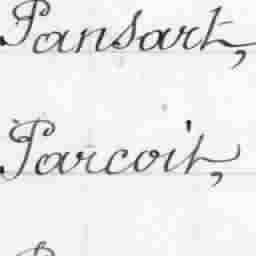 Pansart,
Parcoit,